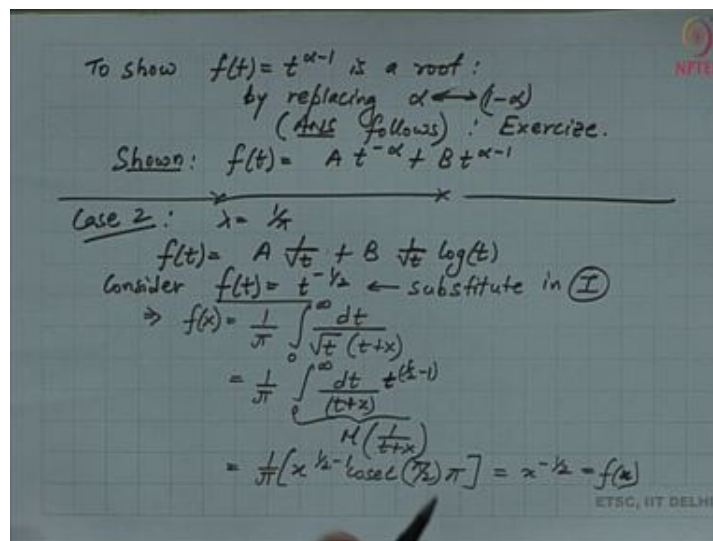 To show f(t) = t^{α-1} is a root :
by replacing α ↔ (1-α)
(ANS follows) : Exercize.
Shown: f(t) = A t^{-α} + B t^{α-1}
Case 2 : λ = 1/π
f(t) = A 1/√t + B 1/√t log(t)
Consider f(t) = t^{-1/2} ← substitute in (I)
⇒ f(x) = 1/π ∫_0^∞ dt / (√t (t+x))
= 1/π ∫_0^∞ dt/(t+x) t^{(1/2-1)}
M(1/(t+x))
= 1/π [x^{1/2-1} cosec(π/2) π] = x^{-1/2} = f(x)
NPTE
ETSC, IIT DELHI